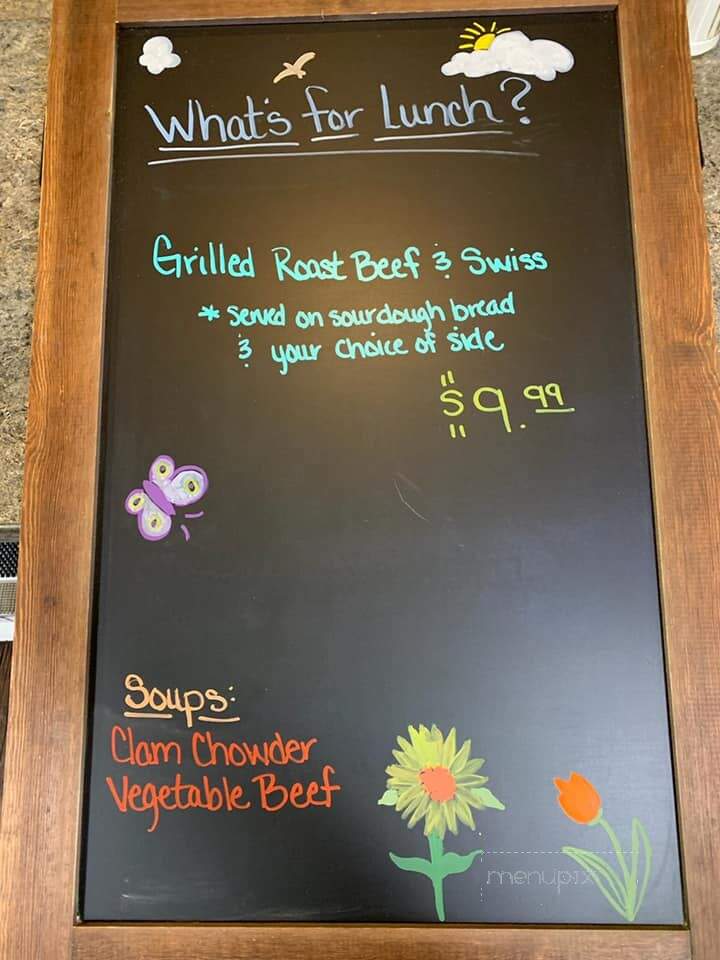 What's for Lunch?
Grilled Roast Beef & Swiss
* Served on sourdough bread
& your choice of side
$9.99
Soups:
Clam Chowder
Vegetable Beef
menupix